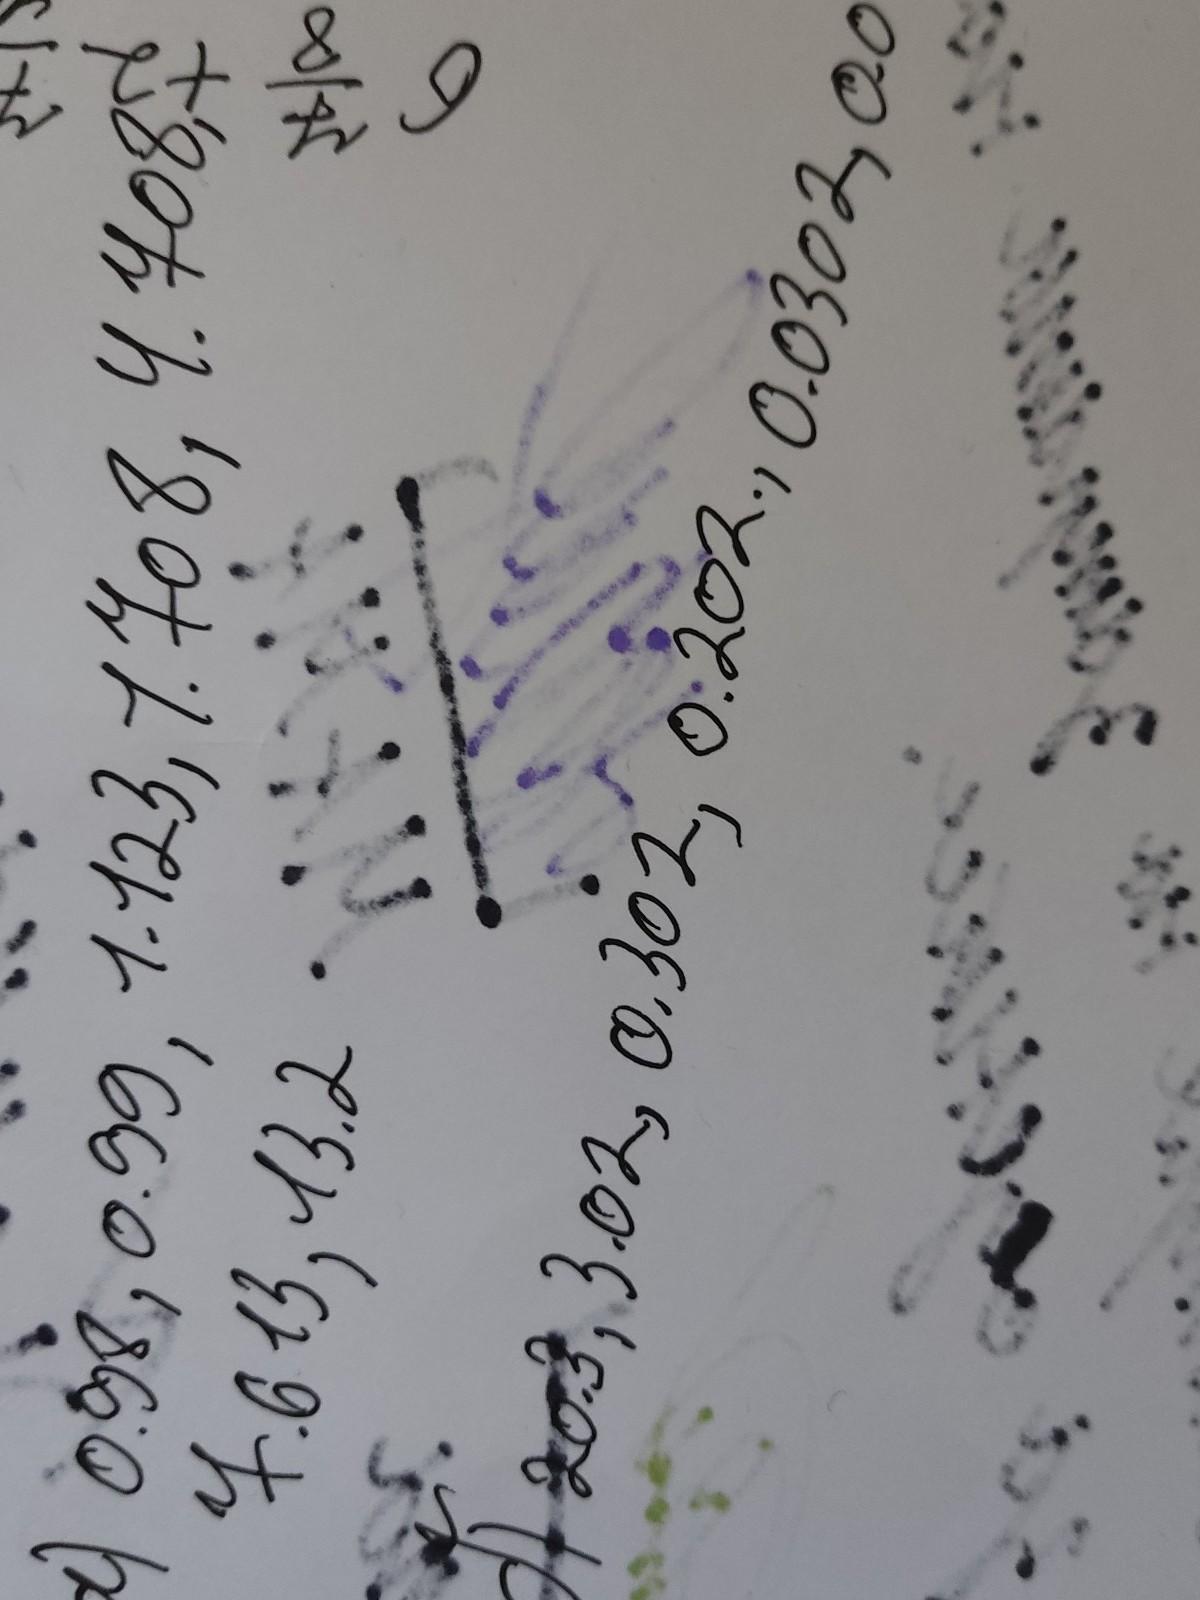 a) 0.98, 0.99, 1.123, 1.408, 4.408,
4.613, 13.2
d) 20.3, 3.02, 0.302, 0.202., 0.0302, 0.0